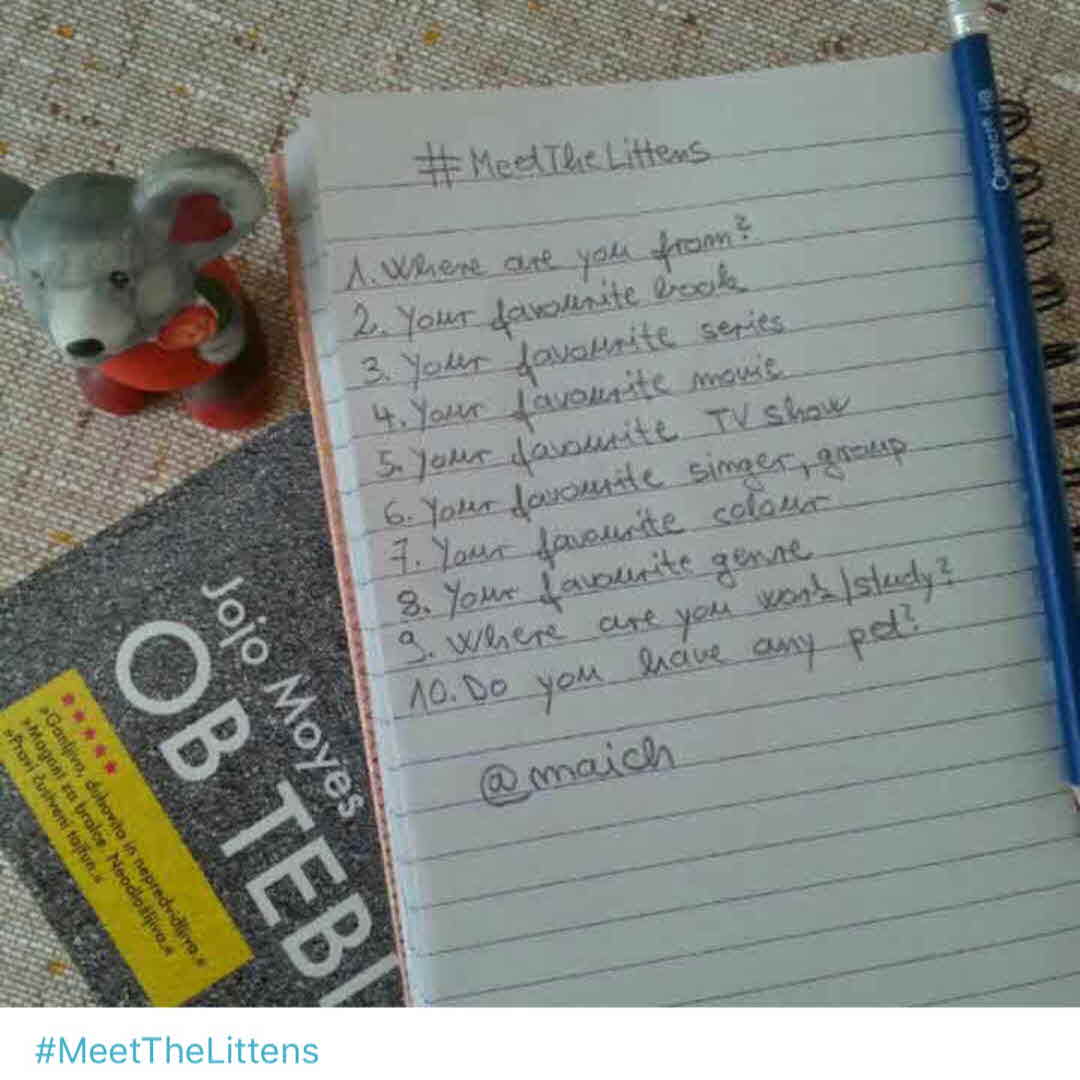 #MeetTheLittens
1. Where are you from?
2. Your favourite book
3. Your favourite series
4. Your favourite movie
5. Your favourite TV show
6. Your favourite singer, group
7. Your favourite colour
8. Your favourite genre
9. Where are you work/study?
10. Do you have any pet?
@maich
Jojo Moyes
OB TEBI
»Ganljivo, duhovito in nepredvidljivo.«
»Magnet za bralce. Neodložljivo.«
»Pravi žuljivi
#MeetTheLittens